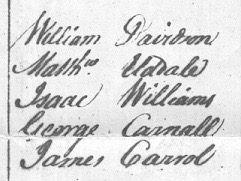 William Davidson
Matthw. Udale
Isaac Williams
George Carnall
James Carrol